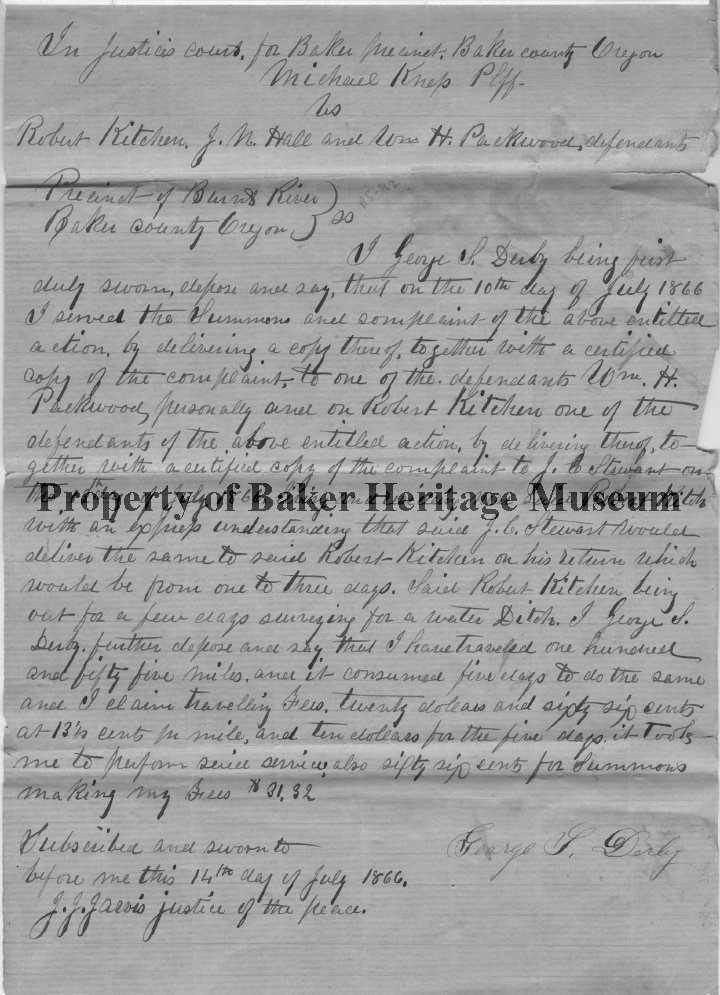 In Justices court, for Baker precinct, Baker county Oregon
Michael Knep Plff-
Vs
Robert Kitchen, J. N. Hall and Wm H. Packwood, defendants
Precinct of Burnt River
Baker county Oregon } ss
I George S. Derby being first
duly sworn, depose and say, that on the 10th day of July 1866
I served the Summons and complaint of the above entitled
action, by delivering a copy therof, together with a certified
copy of the complaint, to one of the defendants Wm. H.
Packwood, personally and on Robert Kitchen one of the
defendants of the above entitled action, by delivering therof, to-
gether with a certified copy of the complaint to J. C. Stewart on
the day of July 1866
Property of Baker Heritage Museum
with an express understanding that said J. C. Stewart would
deliver the same to said Robert Kitchen on his return which
would be from one to three days. Said Robert Kitchen being
out for a few days surveying for a water Ditch. I George S.
Derby further depose and say that I have traveled one hundred
and fifty five miles, and it consumed five days to do the same
and I claim travelling Fees, twenty dollars and sixty six cents
at 13⅓ cents pr mile, and ten dollars for the five days, it took
me to perform said service, also sixty six cents for Summons
making my Fees $31,32
Subscribed and sworn to
before me this 14th day of July 1866.
J. J. Jarvis justice of the peace.
George S. Derby